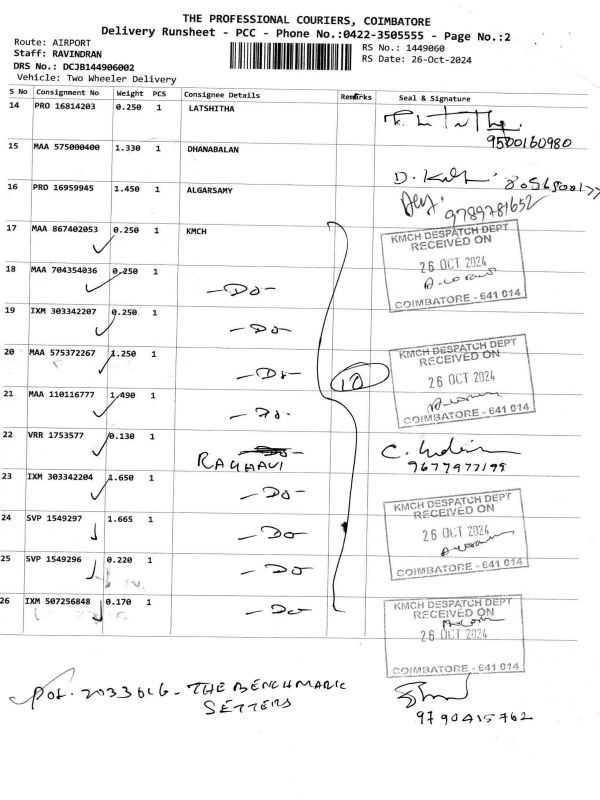 THE PROFESSIONAL COURIERS, COIMBATORE
Delivery Runsheet - PCC - Phone No.:0422-3505555 - Page No.:2
Route: AIRPORT
RS No.: 1449060
Staff: RAVINDRAN
RS Date: 26-Oct-2024
DRS No.: DCJB144906002
Vehicle: Two Wheeler Delivery
S No Consignment No Weight PCS Consignee Details Remarks Seal & Signature
14 PRO 16814203 0.250 1 LATSHITHA
9500160980
15 MAA 575000400 1.330 1 DHANABALAN
16 PRO 16959945 1.450 1 ALGARSAMY
9789781652
17 MAA 867402053 0.250 1 KMCH
KMCH DESPATCH DEPT
RECEIVED ON
26 OCT 2024
COIMBATORE - 641 014
18 MAA 704354036 0.250 1 -Do-
19 IXM 303342207 0.250 1 -Do-
20 MAA 575372267 1.250 1 -Do-
10
KMCH DESPATCH DEPT
RECEIVED ON
26 OCT 2024
COIMBATORE - 641 014
21 MAA 110116777 1.490 1 -Do-
22 VRR 1753577 0.130 1
RAGHAVI
9677977199
23 IXM 303342204 1.650 1 -Do-
KMCH DESPATCH DEPT
RECEIVED ON
26 OCT 2024
COIMBATORE - 641 014
24 SVP 1549297 1.665 1 -Do-
25 SVP 1549296 0.220 1 -Do-
26 IXM 507256848 0.170 1 -Do-
KMCH DESPATCH DEPT
RECEIVED ON
26 OCT 2024
COIMBATORE - 641 014
2033616 - THE BENCHMARK
SETTERS
9790415762